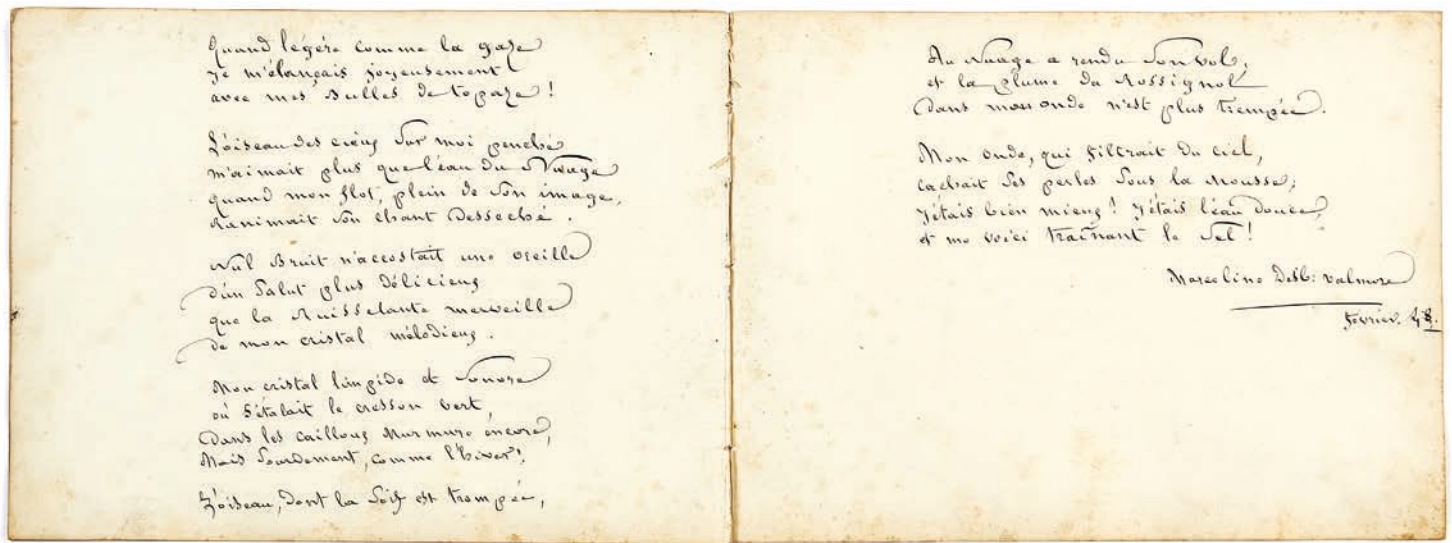 Quand légère comme la gaze
je m'élançais joyeusement
avec mes Bulles de topaze !
L'oiseau des cieux Sur moi penché
m'aimait plus que l'eau du Nuage
quand mon flot, plein de Son image,
Ranimait Son chant Desseché.
Nul Bruit n'accostait une oreille
d'un Salut plus Délicieux
que la Ruisselante merveille
de mon cristal mélodieux.
Mon cristal limpide et Sonore
où S'étalait le cresson vert,
Dans les cailloux Murmure encore,
Mais Sourdement, comme l'hiver !
L'oiseau, Dont la Soif est trompée,
Au Nuage a rendu Son vol,
et la plume du Rossignol
Dans mon onde n'est plus trempée.
Mon onde, qui filtrait du ciel,
cachait Ses perles Sous la Mousse ;
J'étais bien mieux ! J'étais l'eau Douce,
et me voici traînant le Sel !
Marceline Desb: Valmore
février. 48.